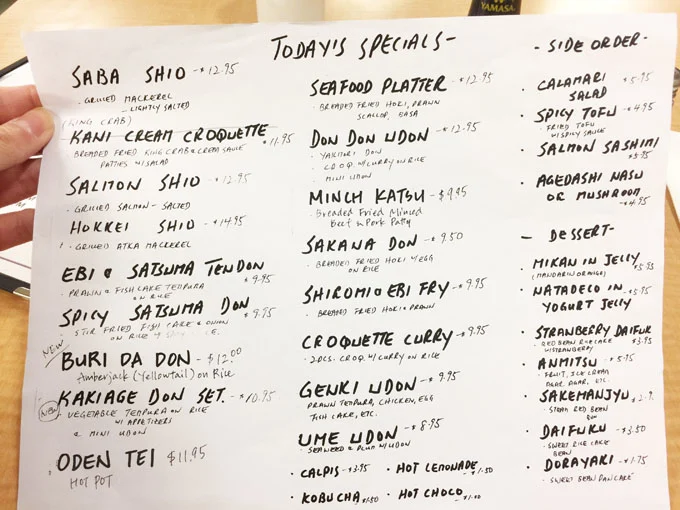 YAMASA
TODAY'S SPECIALS-
SABA SHIO - $12.95
· GRILLED MACKEREL
- LIGHTLY SALTED
(KING CRAB)
KANI CREAM CROQUETTE - $11.95
BREADED FRIED KING CRAB & CREAM SAUCE
PATTIES W/ SALAD
SALMON SHIO - $12.95
· GRILLED SALMON - SALTED
HOKKEI SHIO - $14.95
· GRILLED ATKA MACKEREL
EBI & SATSUMA TENDON - $9.95
· PRAWN & FISH CAKE TEMPURA
ON RICE
SPICY SATSUMA DON - $9.75
· STIR FRIED FISH CAKE & ONION
ON RICE
NEW
BURI DA DON - $12.00
Amberjack (Yellowtail) on Rice
NEW
KAKIAGE DON SET. - $10.95
VEGETABLE TEMPURA ON RICE
W/ APPETIZERS
& MINI UDON
ODEN TEI $11.95
HOT POT
SEAFOOD PLATTER - $12.95
· BREADED FRIED HOKI, PRAWN
SCALLOP, BASA
DON DON UDON - $12.95
· YAKINIKU DON
· CROQ W/ CURRY ON RICE
· MINI UDON
MINCH KATSU - $9.95
- Breaded Fried Minced
Beef & Pork Patty
SAKANA DON - $9.50
· BREADED FRIED HOKI W/ EGG
ON RICE
SHIROMI & EBI FRY - $9.95
· BREADED FRIED HOKI & PRAWN
CROQUETTE CURRY - $9.95
· 2 PCS. CROQ W/ CURRY ON RICE
GENKI UDON - $9.95
PRAWN TEMPURA, CHICKEN, EGG
FISH CAKE, ETC.
UME UDON - $8.95
SEAWEED & PLUM W/ UDON
· CALPIS - $3.95 · HOT LEMONADE - $1.50
· KOBUCHA - $1.50 · HOT CHOCO - $1.00
- SIDE ORDER -
· CALAMARI - $5.95
SALAD
· SPICY TOFU - $4.95
· FRIED TOFU
W/ SPICY SAUCE
· SALMON SASHIMI
- $5.75
· AGEDASHI NASU
OR MUSHROOM
- $4.95
- DESSERT -
· MIKAN IN JELLY
(MANDARIN ORANGE) - $5.95
· NATADECO IN - $5.95
YOGURT JELLY
· STRAWBERRY DAIFUK
· RED BEAN RICE CAKE - $3.95
W/ STRAWBERRY
· ANMITSU - $5.95
· FRUIT, ICE CREAM
AGAR, AGAR, ETC.
· SAKEMANJYU - $2.
· STEAM RED BEAN
BUN
· DAIFUKU - $3.50
· SWEET RICE CAKE
BEAN
· DORAYAKI - $1.75
· SWEET BEAN PANCAKE